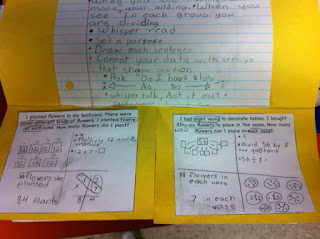 more your adding. When you
see in each group you
are dividing
• Whisper read
• Set a purpose
• Draw each sentence
• Connect your data with arrows
that show action
• Ask "Do I have a total
No Yes
• whisper, talk, Act it out
I planted flowers in my backyard. There were
seven different kinds of flowers. I planted twelve
of each kind. How many flowers did I plant?
• Multiply 12 and
12 x 7 =
# flowers she
planted
84 plants
I had eight vases to decorate tables. I bought
fifty-six flowers to place in the vases. How many
flowers can I place in each vase?
• divid 56 by 8
56 ÷ 8 =
# flowers in
each vase
7 in each
vase